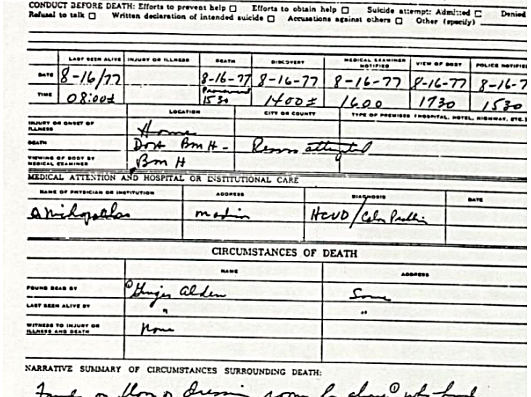 CONDUCT BEFORE DEATH: Efforts to prevent help □ Efforts to obtain help □ Suicide attempt: Admitted □ Denied
Refusal to talk □ Written declaration of intended suicide □ Accusations against others □ Other (specify)
LAST SEEN ALIVE INJURY OR ILLNESS DEATH DISCOVERY MEDICAL EXAMINER NOTIFIED VIEW OF BODY POLICE NOTIFIED
DATE 8-16/77 8-16-77 8-16-77 8-16-77 8-16-77 8-16-7
TIME 08:00± Pronounced 1530 1400± 1600 1730 1530
LOCATION CITY OR COUNTY TYPE OF PREMISES (HOSPITAL, HOTEL, HIGHWAY, ETC.)
INJURY OR ONSET OF ILLNESS Home
DEATH DOA BMH - attempted
VIEWING OF BODY BY MEDICAL EXAMINER BMH
MEDICAL ATTENTION AND HOSPITAL OR INSTITUTIONAL CARE
NAME OF PHYSICIAN OR INSTITUTION ADDRESS DIAGNOSIS DATE
HCVD/Colon
CIRCUMSTANCES OF DEATH
NAME ADDRESS
FOUND DEAD BY ① Ginger Alden Same
LAST SEEN ALIVE BY " "
WITNESS TO INJURY OR ILLNESS AND DEATH None
NARRATIVE SUMMARY OF CIRCUMSTANCES SURROUNDING DEATH:
Found on floor of dressing room by above ① who had